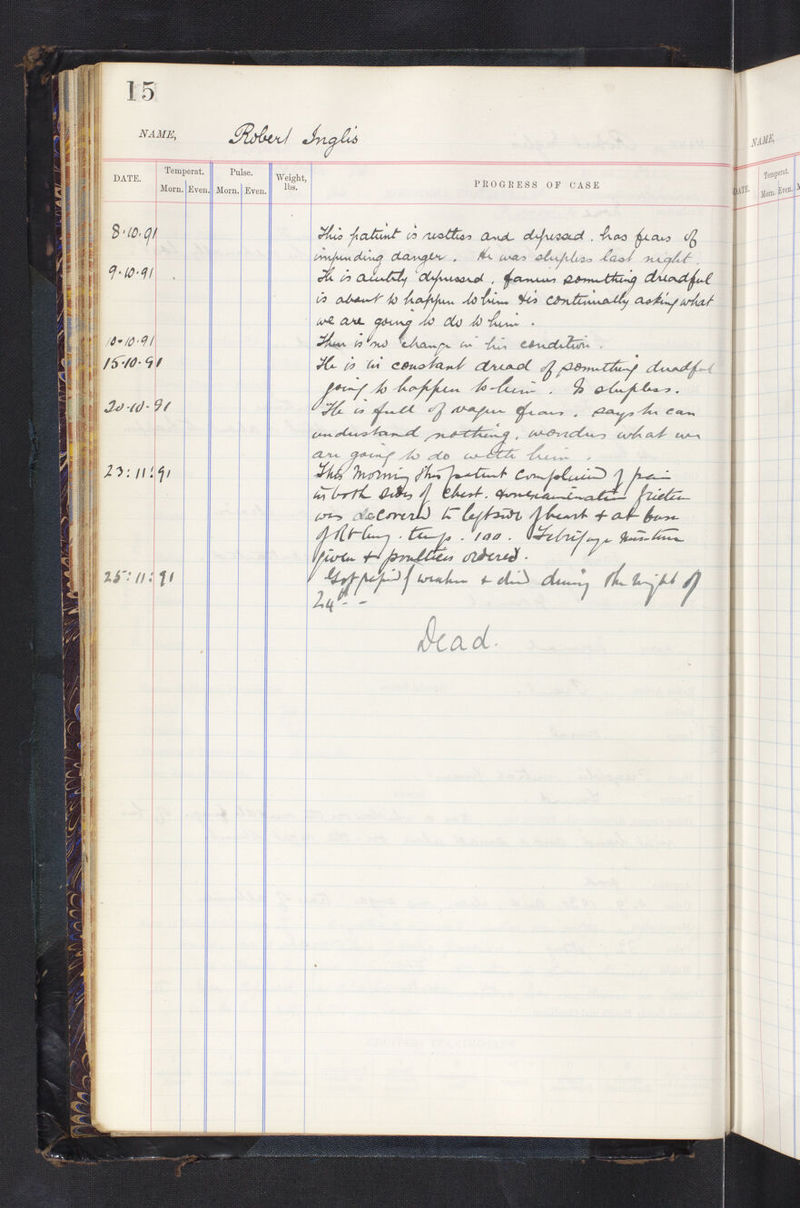 15
NAME, Robert Inglis
NAME,
DATE. Temperat. Pulse. Weight, lbs. PROGRESS OF CASE
Morn. Even. Morn. Even.
DATE. Temperat.
Morn. Even.
8.10.91 This patient is restless and depressed. has fears of
impending danger. He was sleepless last night.
9.10.91 He is acutely depressed, fancies something dreadful
is about to happen to him & is continually asking what
we are going to do to him.
10.10.91 There is no change in his condition.
15.10.91 He is in constant dread of something dreadful
going to happen to him. Is sleepless.
20.10.91 He is full of vague fears. says he can
understand nothing, wonders what we
are going to do with him.
23:11:91 This morning this patient complained of pain
in both sides of chest. on examination friction
was discovered to left side of heart & at base
of Rt lung. temp. 100. Febrifuge mixture
given & poultices ordered.
25:11:91 Got rapidly weaker & died during the night of
24th
Dead.